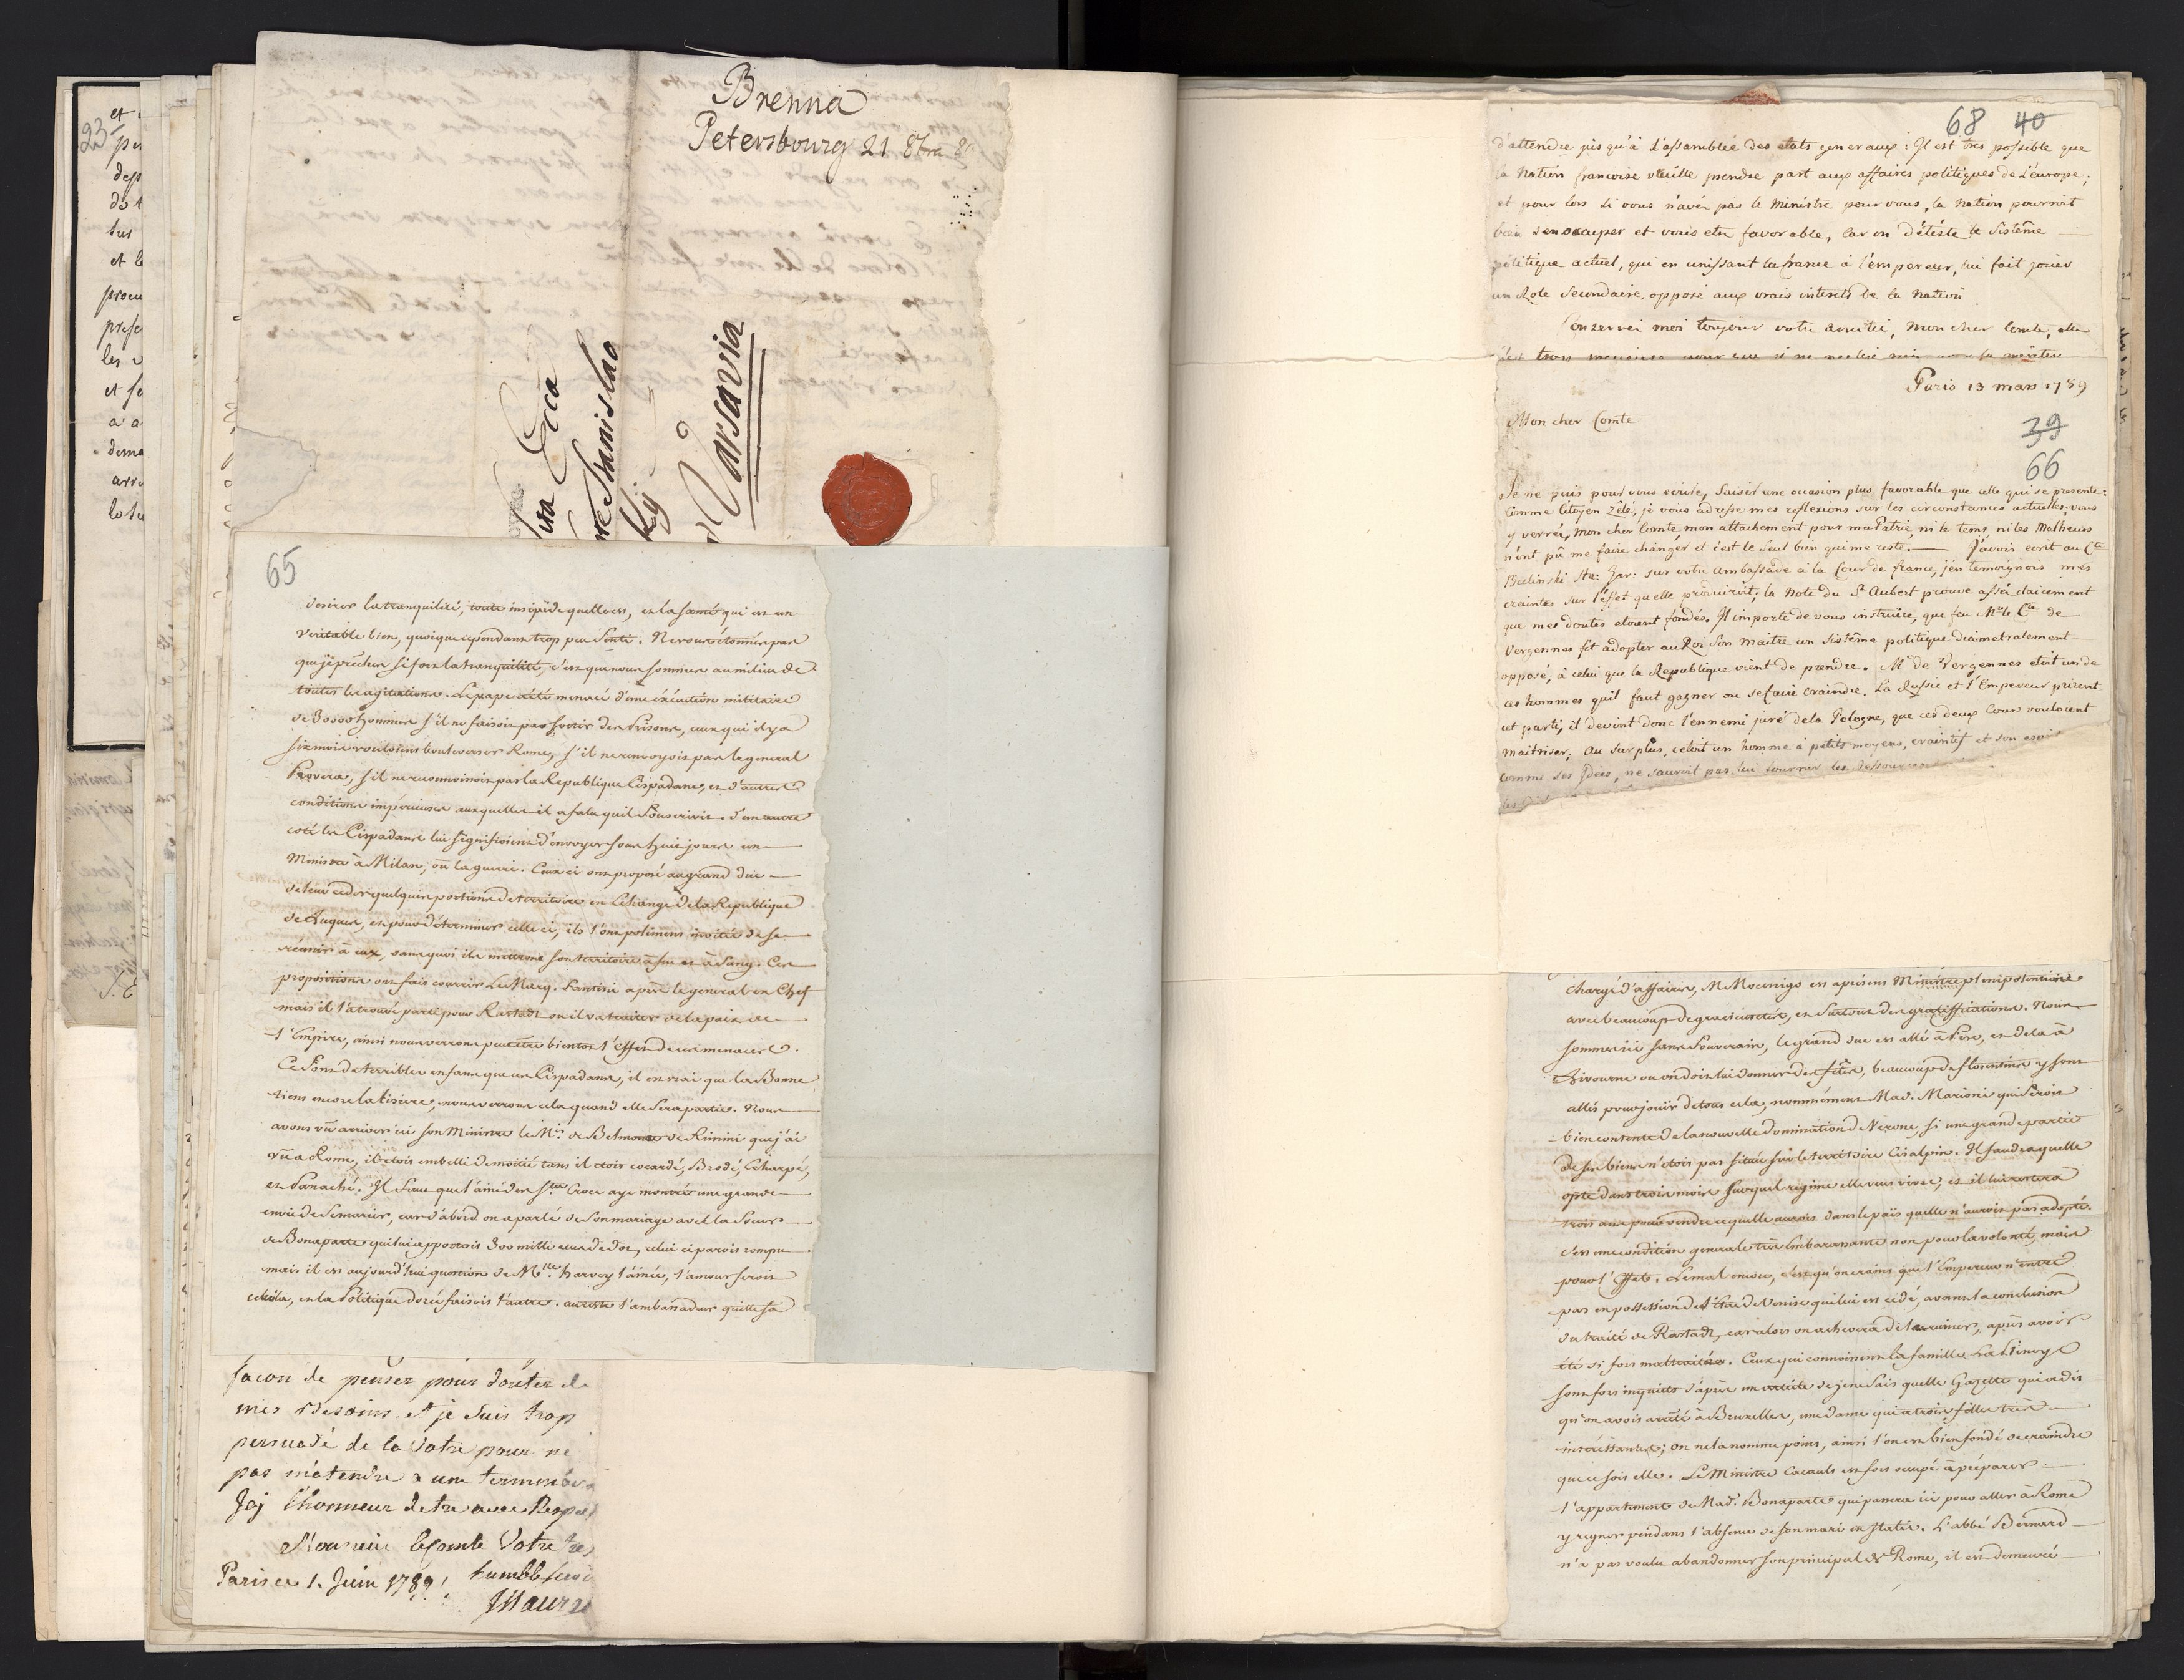 23
et
pu
dep
do t
sur
et le
procu
prese
les
et se
a a
dema
arri
lo su
Brenna
Petersbourg 21 8bre
Ecca
Stanislao
Varsavia
65
desirer la tranquilité, toute insipide quelle est, et la santé qui est un
veritable bien, quoique cependant trop peu senti. Ne vous étonnés pas
que je prêche si fort la tranquilité, c'est que nous sommes au milieu de
toutes les agitations. Le pape a été menacé d'une éxécution militaire
de 30000 hommes s'il ne faisoit pas sortir des Prisons, ceux qui il y a
six mois vouloient bouleverser Rome, s'il ne renvoyoit pas le general
Provera, s'il ne reconnoissoit pas la Republique Cispadane, et d'autres
conditions impérieuses auxquelles il a falu qu'il souscrivit. d'un autre
coté les Cispadans lui signifioient d'envoyer sous huit jours un
Ministre à Milan, ou la guerre. Ceux ci ont proposé au grand duc
de leur ceder quelques portions de territoire en Echange de la Republique
de Luques, et pour déterminer celle ci, ils l'ont poliment invitée de se
réunir à eux, sans quoi ils mettront son territoire à feu et à sang. Ces
propositions ont fait courrir Le Marq. Santini après le general en Chef
mais il l'a trouvé parti pour Rastadt ou il va traiter de la paix de
l'Empire, ainsi nous verrons peut être bientot l'effet de ces menaces.
Ce sont de terribles enfans que ces Cispadans, il est vrai que la Bonne
tient encore la lisiere, nous verrons cela quand elle sera partie. Nous
avons vû arriver ici son Ministre le Mis. de Belmonte de Rimini que j'ai
vû a Rome, il étoit embelli de moitié tant il étoit cocardé, Brodé, Echarpé,
et Panaché. Il faut que l'ainé des Sta Croce aye montré une grande
envie de se marier, car d'abord on a parlé de son mariage avec la Soeur
de Bonaparte qui lui apportoit 300 mille ecus de dot, celui ci paroit rompu
mais il est aujourd'hui question de Mlle. harvey l'ainée, l'amour feroit
celui la, et la Politique dorée faisoit l'autre. au reste l'ambassadeur quitte sa
facon de penser pour douter de
mes desoins. et je suis trop
persuadé de la votre pour ne
pas m'atendre a une
Jaj l'honneur detre avec Respect
Monsieur le Comte Votre tres
Paris ce 1. Juin 1789. humble servi
68 40
d'attendre jusqu'à l'assamblée des etats generaux: Il est tres possible que
la Nation francoise veuille prendre part aux affaires politiques de l'europe;
et pour lors si vous n'avés pas le Ministre pour vous, la Nation pourroit
bien s'en occuper et vous etre favorable, Car on déteste le Sistême
politique actuel, qui en unissant la france à l'empereur, lui fait jouer
un Role Secundaire, opposé aux vrais interets de la Nation.
Conservés moi toujour votre amitié, mon cher Comte, elle
Paris 13 mars 1789
Mon cher Comte
39
66
Je ne puis pour vous ecrire, Saisir une occasion plus favorable que celle qui se presente:
Comme Citoyen Zélé, je vous adresse mes reflexions sur les circonstances actuelles. vous
y verrés, mon cher Comte, mon attachement pour ma Patrie, ni le tems, ni les Malheurs
n'ont pû me faire changer et c'est le seul bien qui me reste. J'avois ecrit au Cte
Bielinski Sta: Gar: sur votre ambassade à la Cour de france, j'en temoignois mes
craintes sur l'effet quelle produiroit; la Note du Sr Aubert prouve assés clairement
que mes doutes etoient fondés. Il importe de vous instruire, que feu Mr le Cte de
Vergennes fit adopter au Roi son maitre un Sistême politique diametralement
opposé, à celui que la Republique vient de prendre. Mr de Vergennes etoit un de
ces hommes quil faut gagner ou se faire craindre. La Russie et l'Empereur prirent
cet parti, il devint donc l'ennemi juré de la Pologne, que ces deux Cours vouloient
maitriser; au surplus, cetoit un homme à petits moyens, craintif et son esprit
comme ses Idées, ne sauroit pas lui fournir les
chargé d'affaires, M. Mocenigo est a présent Ministre plenipotentiaire
avec beaucoup de gracieusetés, et surtout des gratiffications. Nous
sommes ici sans Souverain, le grand duc est allé à Pise, et de la à
Livourne ou on doit lui donner des fêtes, beaucoup de florentins y sont
allés pour jouir de tout cela, nommément Mad. Marioni qui seroit
bien contente de la nouvelle domination de Verone, si une grande partie
de ses biens n'étoit pas située sur le territoire Cisalpin. Il faudra quelle
opte dans trois mois sur quel regime elle veut vivre, et il lui restera
trois ans pour vendre ce quelle auroit dans le païs quelle n'auroit pas adopté.
C'est une condition generale très Embarassante non pour la volonté, mais
pour l'Effet. Le mal encore, c'est qu'on craint que l'Empereur n'entre
pas en possession de l'Etat de Venise qui lui est cédé, avant la conclusion
du traité de Rastadt, car alors on achevera de la ruiner, après avoir
été si fort maltraitée. Ceux qui connoissent la famille
sont fort inquiets d'après un article de je ne sais quelle Gazette qui a dit
qu'on avoit arrêté à Bruxelles, une dame qui a trois filles très
intéressantes; on ne la nomme point, ainsi l'on est bien fondé de craindre
que ce soit elle. Le Ministre Cacault est fort occupé à préparer
l'appartement de Mad. Bonaparte qui passera ici pour aller à Rome
y regner pendant l'absence de son mari en Italie. L'abbé Bernard
n'a pas voulu abandonner son principal de Rome, il est demeuré